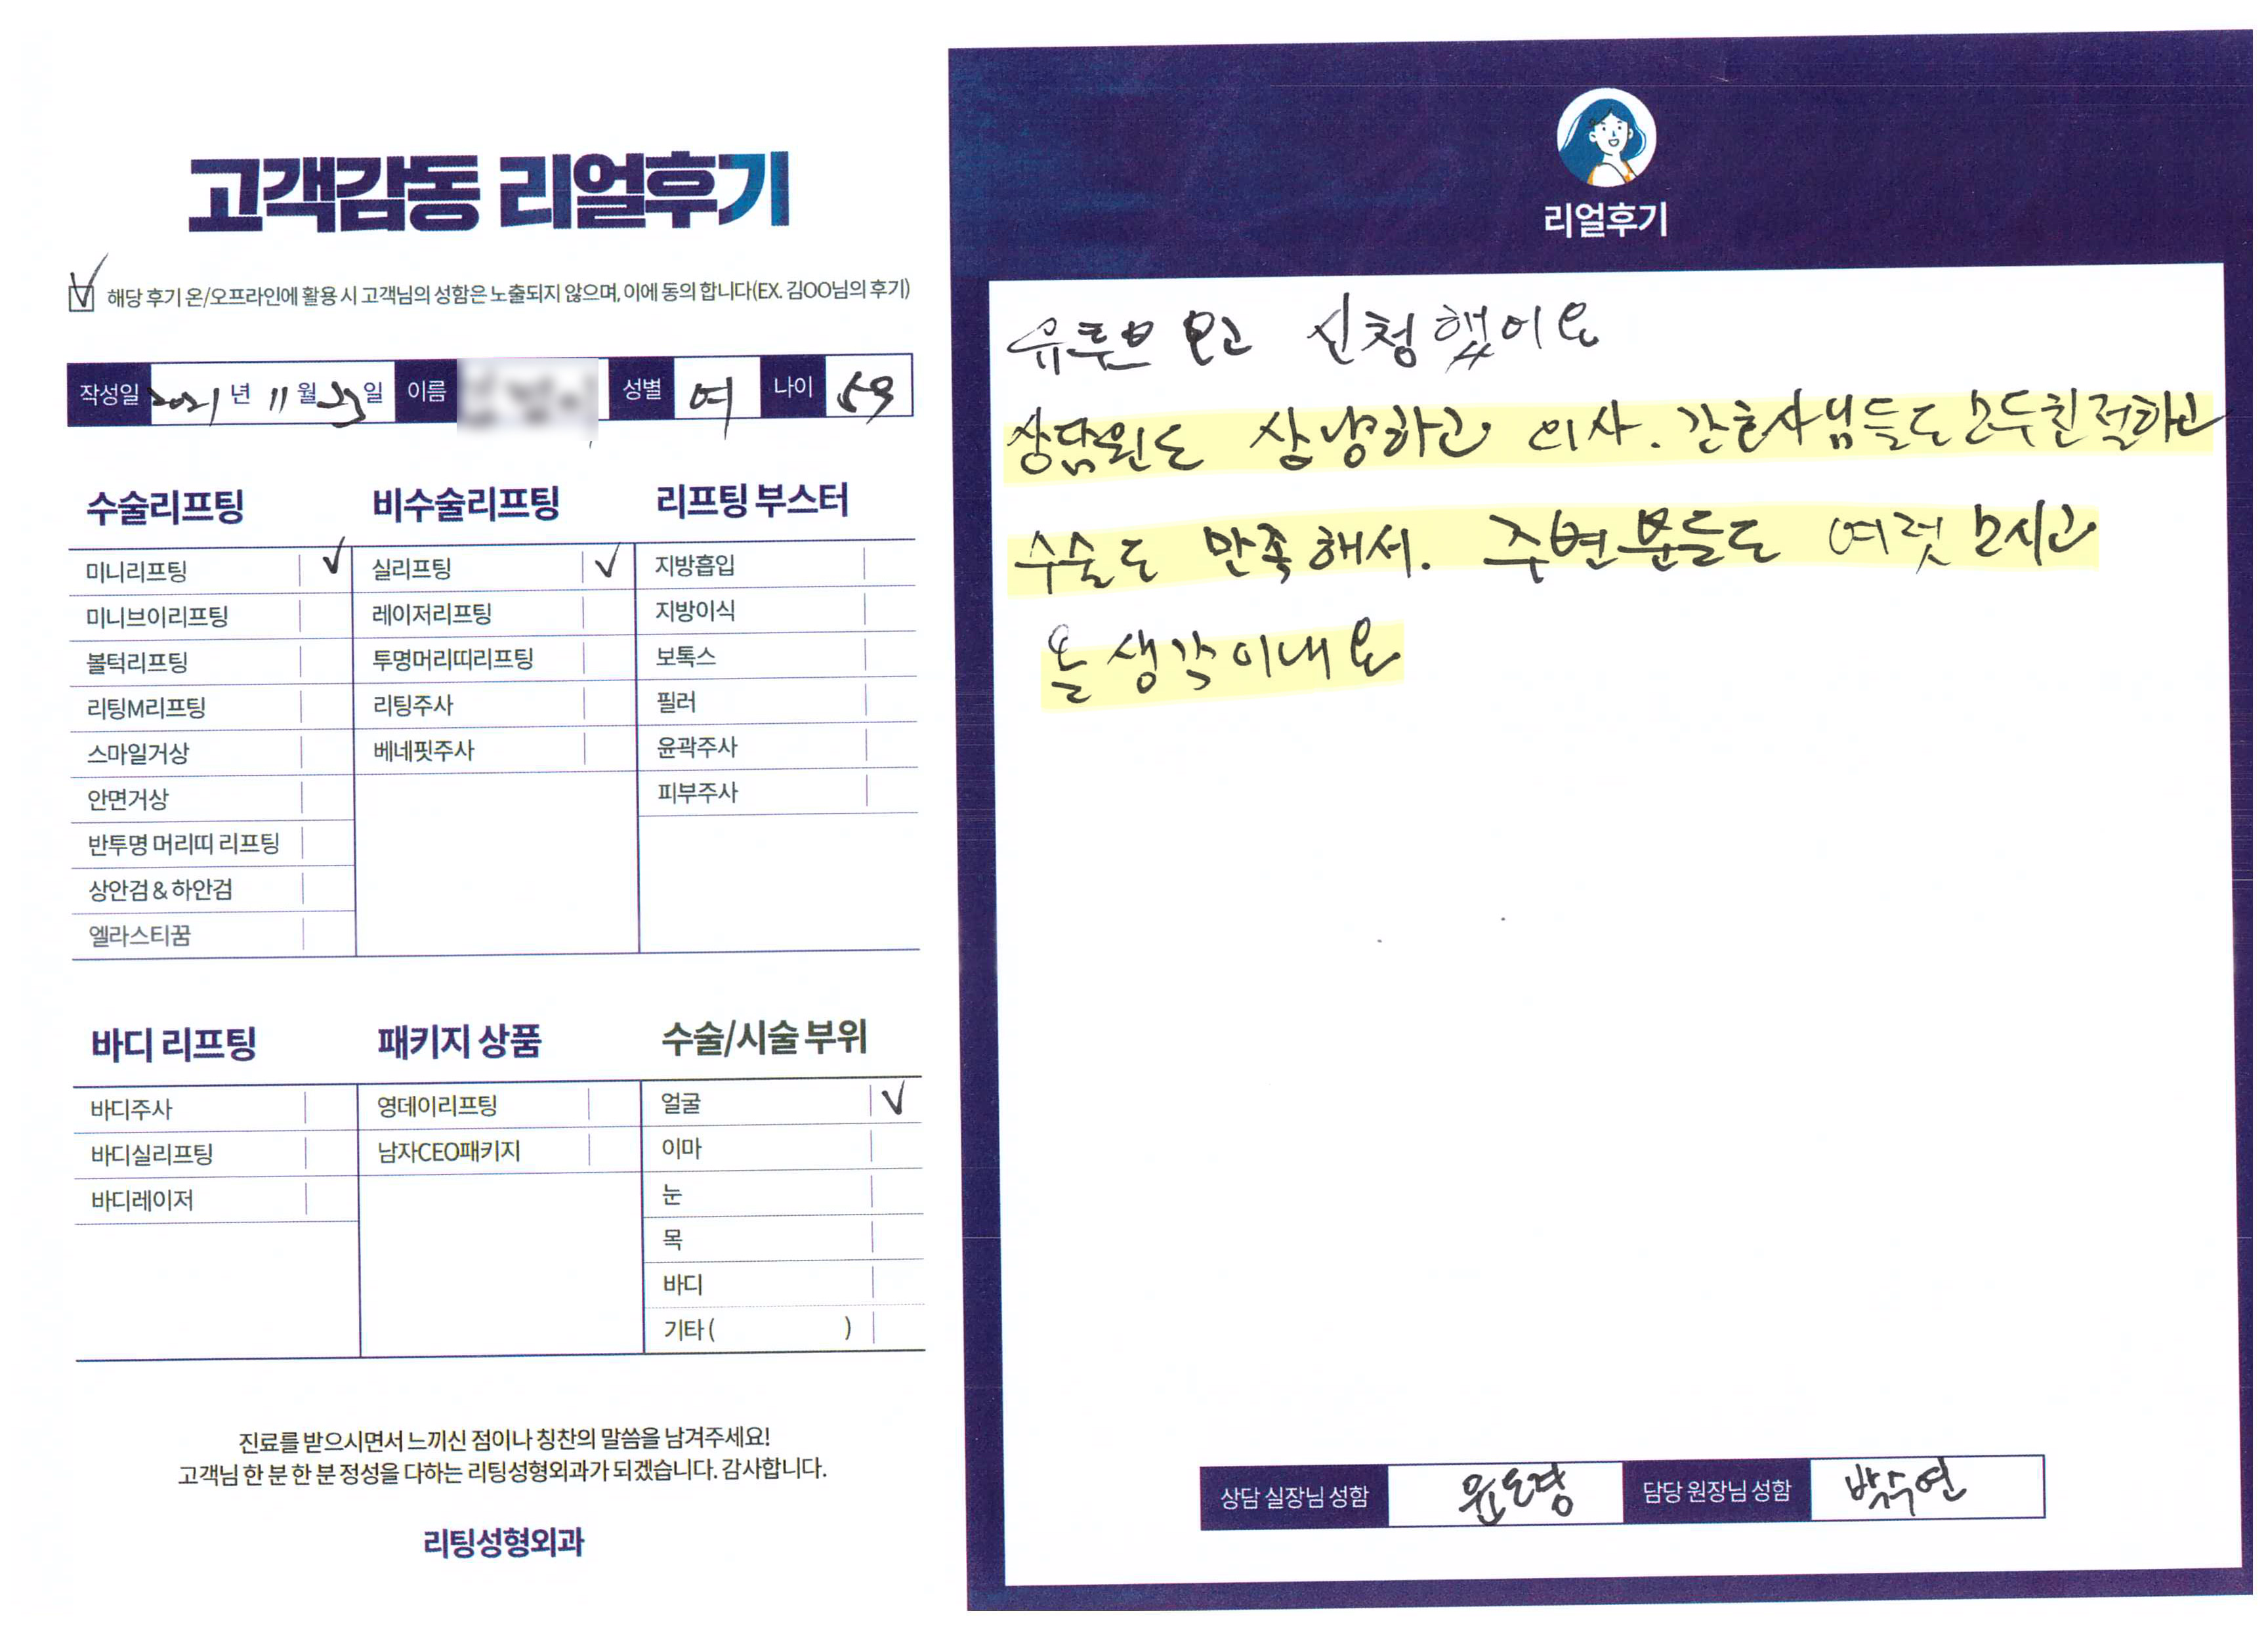 고객감동 리얼후기
해당 후기 온/오프라인에 활용 시 고객님의 성함은 노출되지 않으며, 이에 동의 합니다(EX. 김OO님의 후기)
작성일 2021년 11월 23일 이름 성별 여 나이 59
수술리프팅
미니리프팅 ✓
미니브이리프팅
볼턱리프팅
리팅M리프팅
스마일거상
안면거상
반투명 머리띠 리프팅
상안검 & 하안검
엘라스티꿈
비수술리프팅
실리프팅 ✓
레이저리프팅
투명머리띠리프팅
리팅주사
베네핏주사
리프팅 부스터
지방흡입
지방이식
보톡스
필러
윤곽주사
피부주사
바디 리프팅
바디주사
바디실리프팅
바디레이저
패키지 상품
영데이리프팅
남자CEO패키지
수술/시술 부위
얼굴 ✓
이마
눈
목
바디
기타 ( )
진료를 받으시면서 느끼신 점이나 칭찬의 말씀을 남겨주세요!
고객님 한 분 한 분 정성을 다하는 리팅성형외과가 되겠습니다. 감사합니다.
리팅성형외과
리얼후기
유투브 보고 신청했어요
상담원도 상냥하고 의사. 간호사님들도 모두친절하고
수술도 만족해서. 주변분들도 여럿 모시고
올 생각이내요
상담 실장님 성함 윤도경 담당 원장님 성함 박수연